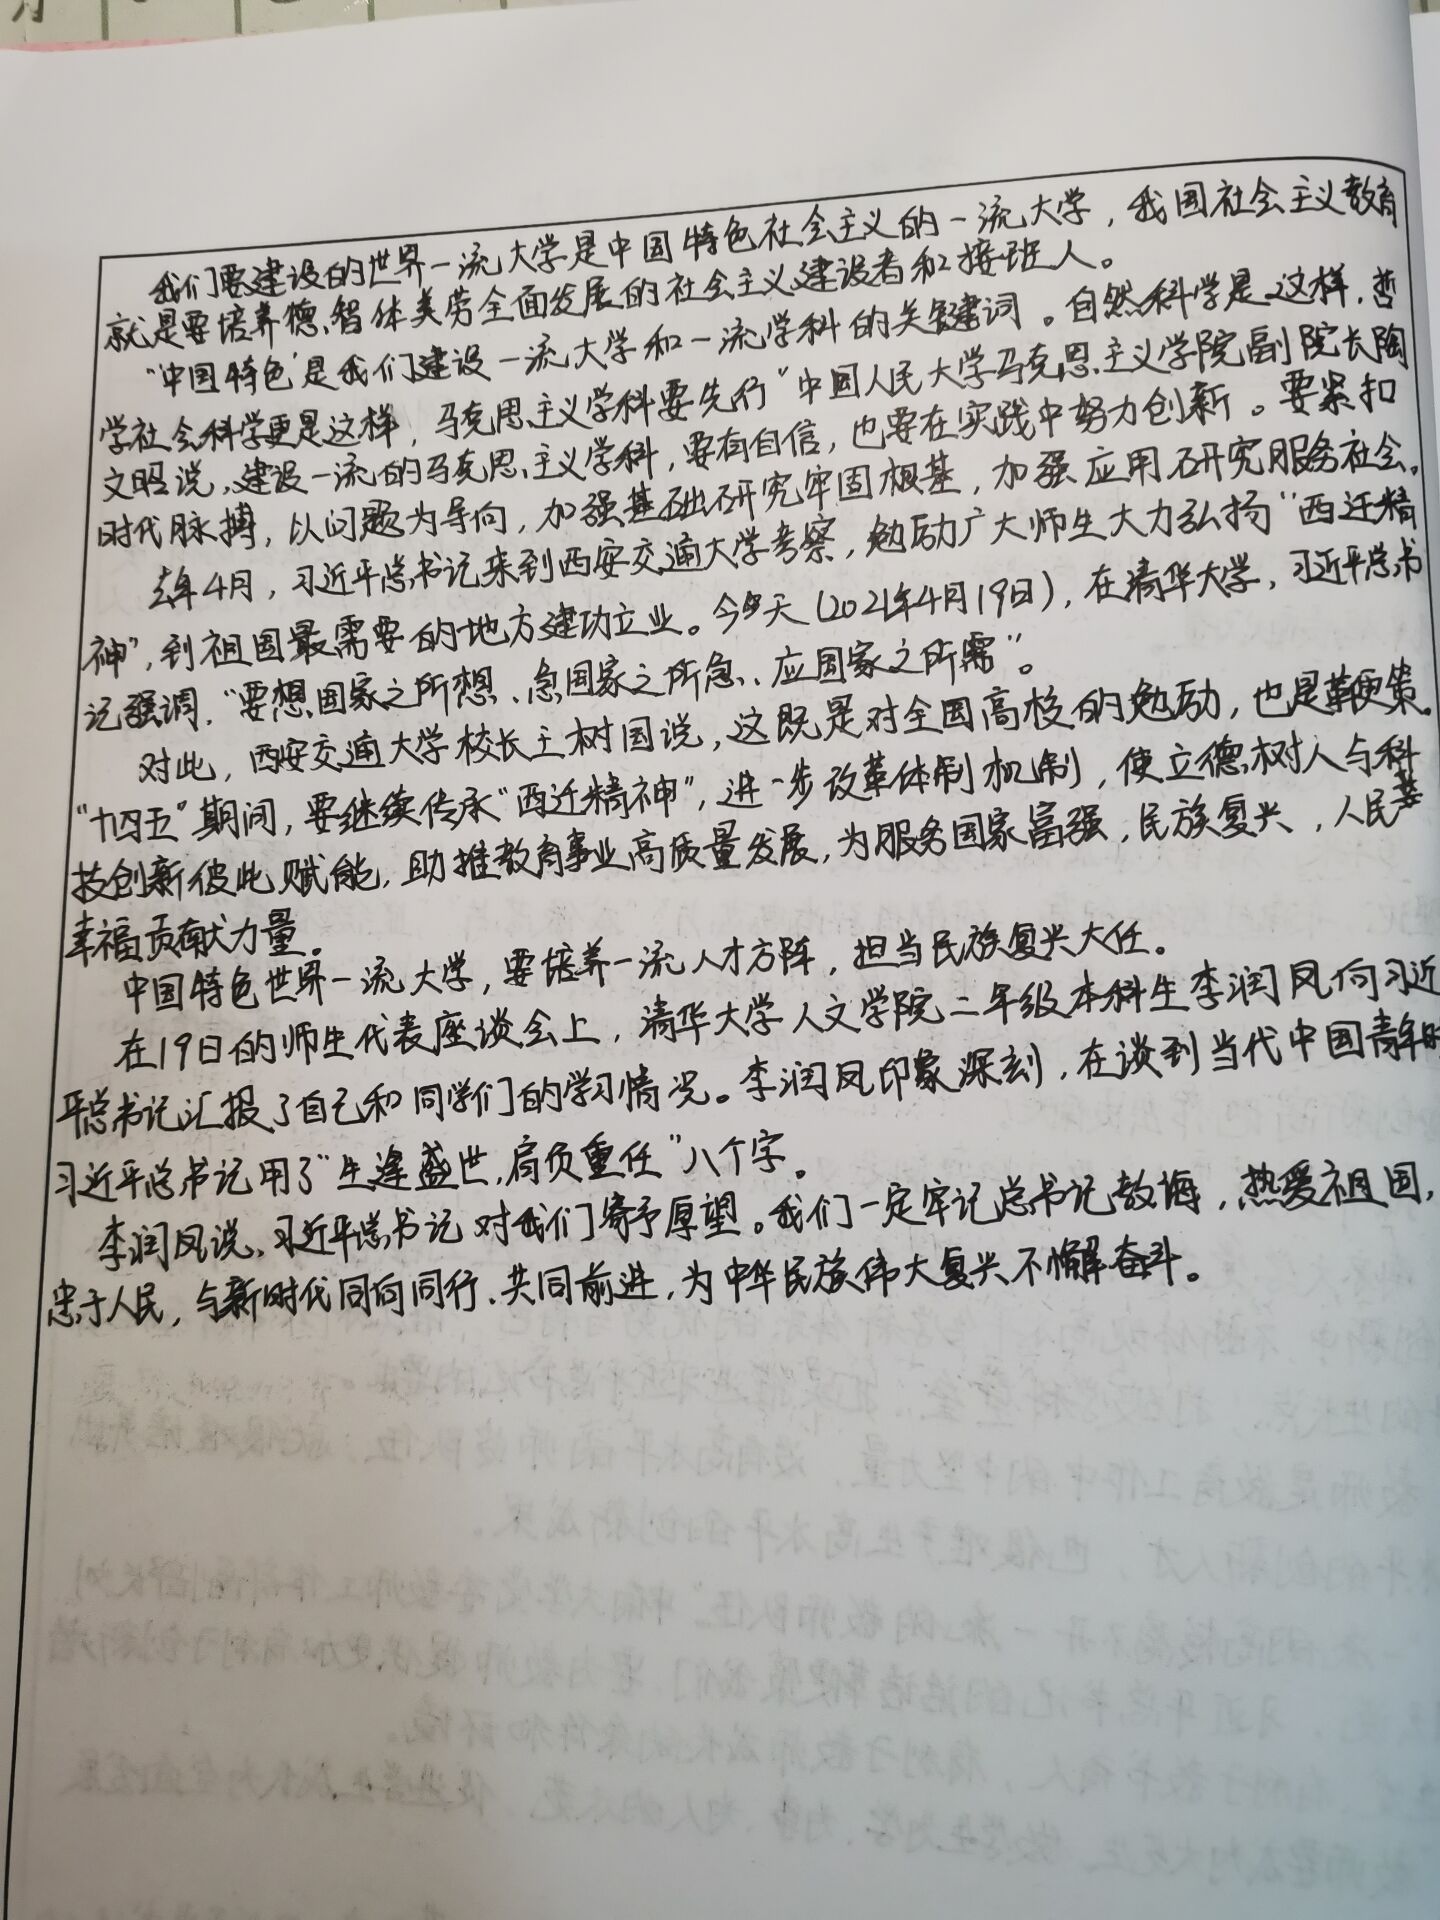 我们要建设的世界一流大学是中国特色社会主义的一流大学，我国社会主义教育
就是要培养德、智体美劳全面发展的社会主义建设者和接班人。
“中国特色’是我们建设一流大学和一流学科的关键词。自然科学是这样，哲
学社会科学更是这样，马克思主义学科要先行”中国人民大学马克思主义学院副院长陶
文昭说，建设一流的马克思主义学科，要有自信，也要在实践中努力创新。要紧扣
时代脉搏，以问题为导向，加强基础研究牢固根基，加强应用研究服务社会。
去年4月，习近平总书记来到西安交通大学考察，勉励广大师生大力弘扬“西迁精
神”，到祖国最需要的地方建功立业。今天（2021年4月19日），在清华大学，习近平总书
记强调，“要想国家之所想、急国家之所急、应国家之所需”。
对此，西安交通大学校长王树国说，这既是对全国高校的勉励，也是鞭策。
“十四五”期间，要继续传承“西迁精神”，进一步改革体制机制，使立德树人与科
技创新彼此赋能，助推教育事业高质量发展，为服务国家富强，民族复兴，人民
幸福贡献力量。
中国特色世界一流大学，要培养一流人才方阵，担当民族复兴大任。
在19日的师生代表座谈会上，清华大学人文学院二年级本科生李润凤向习近
平总书记汇报了自己和同学们的学习情况。李润凤印象深刻，在谈到当代中国青年时
习近平总书记用了“生逢盛世，肩负重任”八个字。
李润凤说，习近平总书记对我们寄予厚望。我们一定牢记总书记教诲，热爱祖国，
忠于人民，与新时代同向同行、共同前进，为中华民族伟大复兴不懈奋斗。